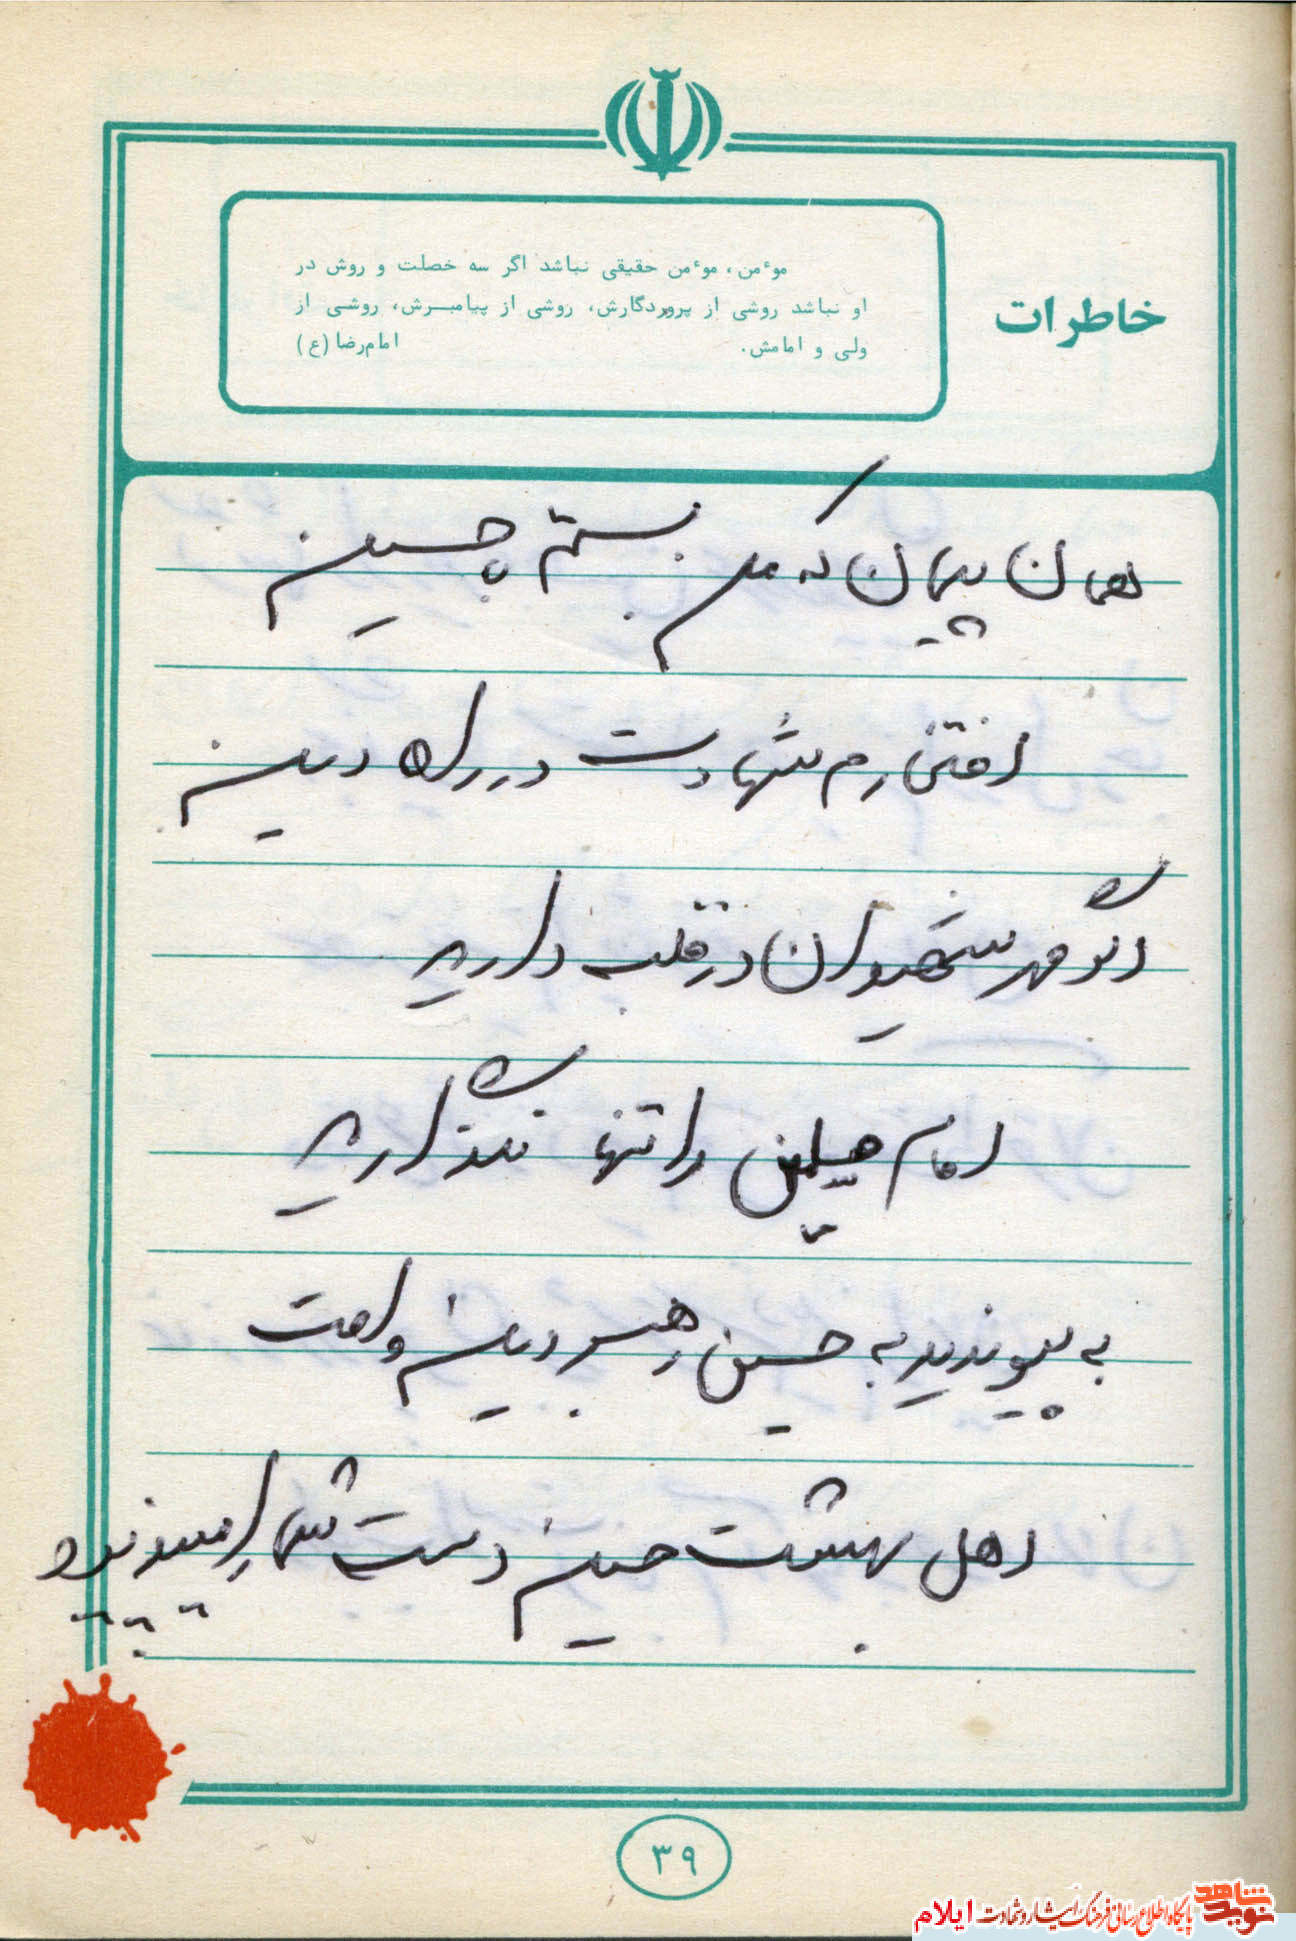 خاطرات
موٴمن، موٴمن حقیقی نباشد اگر سه خصلت و روش در
او نباشد روشی از پروردگارش، روشی از پیامبرش، روشی از
ولی و امامش. امام‌رضا (ع)
همان پیمان که من بستم باحسین
افتخارم شهادت در راه دین
اگر مهر شهیدان در قلب دارید
امام خمینی را تنها نگذارید
به پیوندید به حسین رهبر دین و امت
اهل بهشت حسین دست شما را میبوید
۳۹
نوید شاهد
پایگاه اطلاع رسانی فرهنگ ایثار و شهادت ایلام